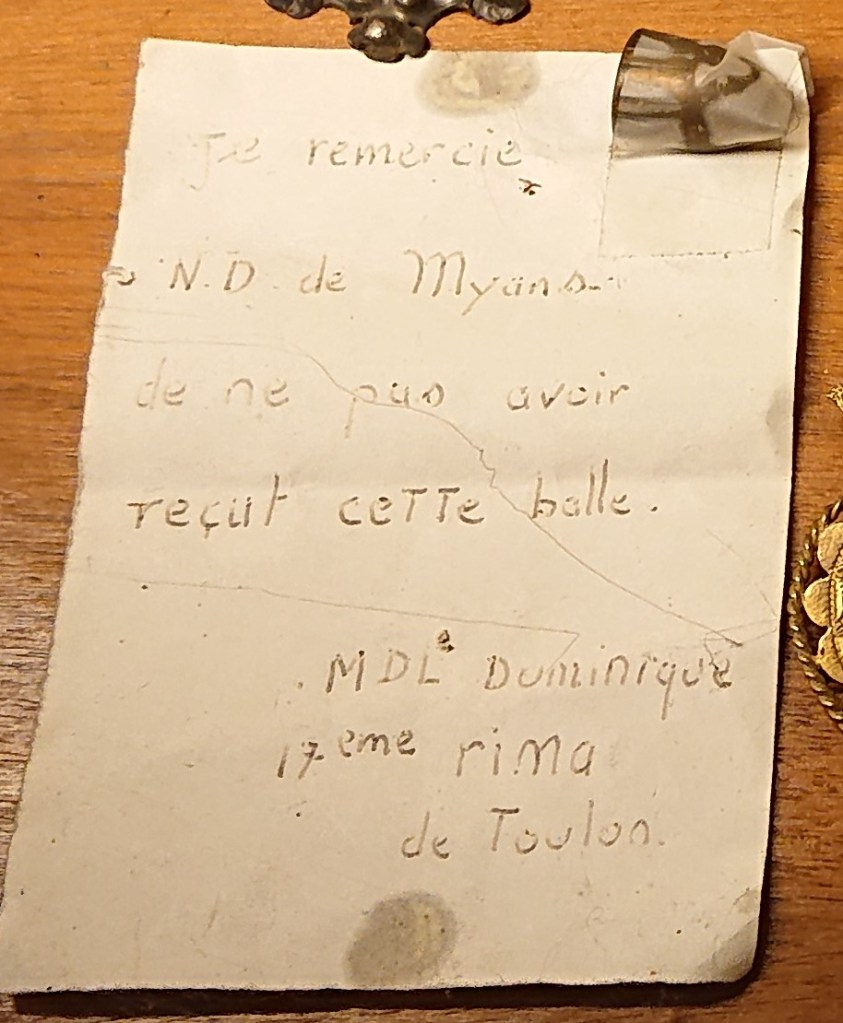 Je remercie
N.D. de Myans
de ne pas avoir
reçut cette balle.
MDLe Dominique
17eme rima
de Toulon.